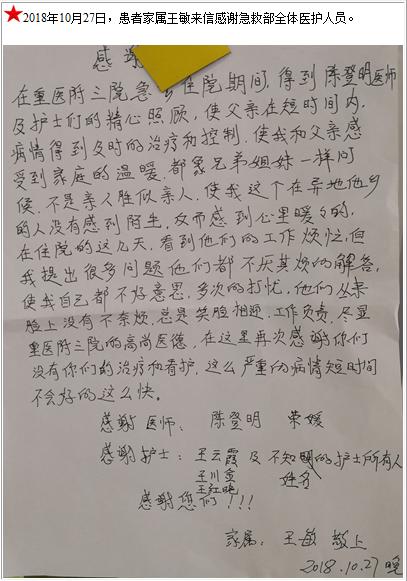 ★2018年10月27日，患者家属王敏来信感谢急救部全体医护人员。
感谢
在重医附三院急 住院期间，得到陈登明医师
及护士们的精心照顾，使父亲在短时间内，
病情得到及时的治疗和控制，使我和父亲感
受到家庭的温暖，都象兄弟姐妹一样问
候，不是亲人胜似亲人，使我这个在异地他乡
的人没有感到陌生，反而感到心里暖暖的，
在住院的这几天，看到他们的工作烦忙，但
我提出很多问题他们都不厌其烦的解答，
使我自己都不好意思，多次的打扰，他们从来
脸上没有不奈烦，总是笑脸相迎，工作负责，尽显
重医附三院的高尚医德，在这里再次感谢你们
没有你们的治疗和看护，这么严重的病情短时间
不会好的这么快。
感谢医师： 陈登明 荣媛
感谢护士：王云霞 及不知明的护士所有人
王川金 姓名
王红艳
感谢您们!!!
家属：王敏 敬上
2018.10.27晚